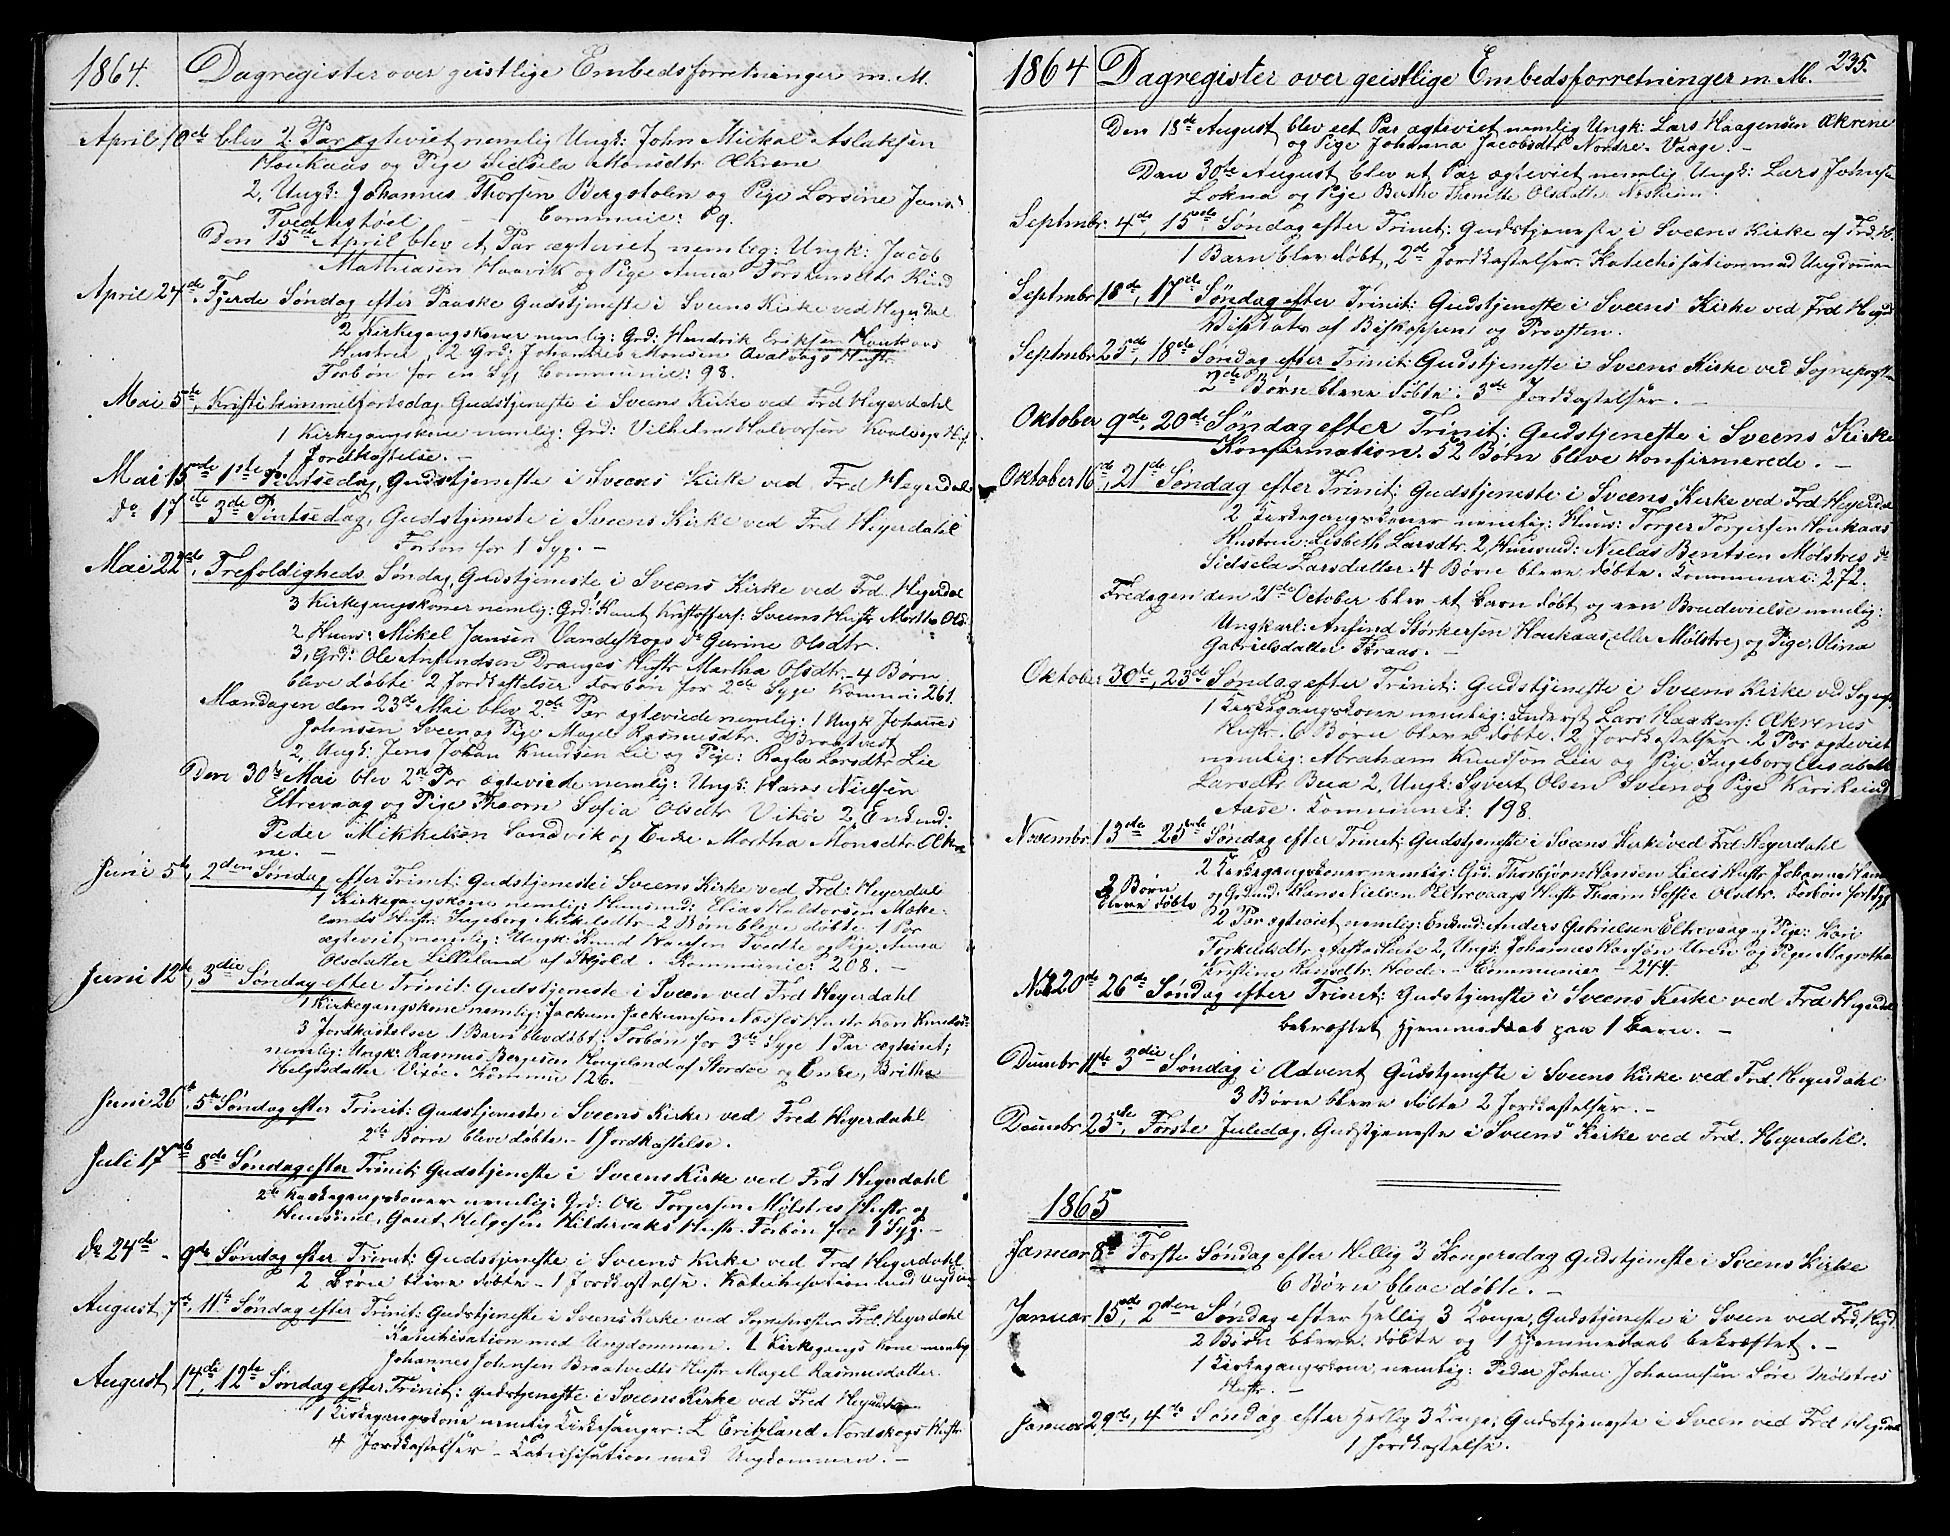 1864. Dagregister over geistlige Embedsforretninger m. M.
April 10de blev 2 Par ægteviet nemlig Ungk: John Mickal Aslaksen
Houkaas og Pige Sidsela Monsdtr Økrene
2, Ungk: Johannes Thorsen Bergstolen og Pige Lorsine Jans:
Tvedtestøel – Communic: 89.
Den 15de April blev et Par ægteviet nemlig: Ungk: Jacob
Mathiasen Haavik og Pige Anna Torstensdtr Rind
April 24de, Fjerde Søndag efter Paaske Gudstjeneste i Sveens Kirke ved Heyerdal
2 Kirkegangskoner nemlig: Grd: Hendrik Eriksen
Hustru, 2 Grd: Johannes Monsen Qvalvogs Hustr
Forbøn for en Syg Communic: 98.
Mai 5te, Kristi himmelfartsdag Gudstjeneste i Sveens Kirke ved Frd Heyerdahl
1 Kirkegangskone nemlig: Grd: Vilhelm Halvorsen Kvalvogs Hst
1 Jordkastelse. –
Mai 15nde 1ste Pintsedag, Gudstjeneste i Sveens Kirke ved Frd Heyerdal
do 17de 3de Pintsedag, Gudstjeneste i Sveens Kirke ved Frd Heyerdahl
Forbøn for 1 Syg. –
Mai 22de, Trefoldigheds Søndag, Gudstjeneste i Sveens Kirke ved Frd. Heyerdal
3 Kirkegangskoner nemlig: Grd: Knut Kristoffers: Sveens Hustr Martha Ols:
2 Huus: Mikel Jansen Vandeskogs do Gurine Olsdtr.
3, Grd: Ole Anfindsen Dranges Hustr Martha Olsdtr. – 4 Børn
bleve døbte 2 Jordkastelser Forbøn for 2de Syge Kommu: 261.
Mandagen den 23de Mai blev 2de Par ægteviede nemlig: 1 Ungk Johannes
Johnsen Sveen og Pige Magel Rasmusdtr. Braatvedt
2, Ungk: Jens Johan Knudsen Lie og Pige: Ragla Larsdtr Lie
Den 30te Mai blev 2de Par ægteviede nemlig: Ungk: Hans Nielsen
Eltrevaag og Pige Thaarn Sofia Olsdtr Vikse 2, Enkemd:
Peder Mikkelsen Sandvik og Enke Martha Monsdtr Økre
ne. –
Juni 5te, 2den Søndag efter Trinit: Gudstjeneste i Sveens Kirke ved Frd: Heyerdal
1 Kirkegangskone nemlig: Huusmd: Elias Haldorsen Møke-
lands Hustr: Ingeborg Mikkelsdtr – 2 Børn bleve døbte 1 Par
ægteviet nemlig: Ungk: Knud Hansen Tvedte og Pige Anna
Olsdatter Lilleland af Skjold. – Kommunic: 208. –
Juni 12te, 3die Søndag efter Trinit: Gudstjeneste i Sveen ved Frd Heyerdahl
1 Kirkegangskone nemlig: Jackum Jackumsen Nasses Hustr Kari Knuds:
3 Jordkastelser 1 Barn blev døbt: Forbøn for 3de Syge 1 Par ægteviet;
nemlig: Ungk: Rasmus Bergesen Hougland af Stordøe og Enke, Britha
Helgesdatter Vixøe. – Kommu 126.
Juni 26te, 5te Søndag efter Trinit: Gudstjeneste i Sveens Kirke ved Fred Heyerdahl
2de Børn bleve døbte – 1 Jordkastelse.
Juli 17de 8de Søndag efter Trinit: Gudstjeneste i Sveens Kirke ved Frd Heyerdahl
2de Kirkegangskoner nemlig: Grd: Ole Torgersen Mølstres Hustr og
Huusmd, Gaut Helgesen Hildervaks Hustr. Forbøn for 1 Syg. –
do 24de – 9de Søndag efter Trinit: Gudstjeneste i Sveens Kirke ved Frd Heyerdahl
2 Børn bleve døbte – 1 Jordkastelse. Katechisation med Ungdom
August 7de, 11te Søndag efter Trinit: Gudstjeneste i Sveens Kirke ved Sognepresten Frd, Heyerdahl
Katechisation med Ungdommen. 1 Kirkegangs Kone nemlig
Johannes Johnsen Braatvedts Hustr Magel Rasmusdatter.
August 14de, 12te Søndag efter Trinit: Gudstjeneste i Sveens Kirke ved Frd Heyerdal
1 Kirkegangskone nemlig Kirkesanger: L Eritzland Nordskogs Hustr
4 Jordkastelser – Katechisation med Ungdommen. –
1864 Dagregister over geistlige Embedsforretninger m. M. 235.
Den 18de August blev eet Par ægteviet nemlig Ungk: Lars Haagensen Økrene
og Pige Johanna Jacobsdtr Nordre-Vaage. –
Den 30te August blev et Par ægteviet nemlig Ungk: Lars Johns:
Lokna og Pige Berthe Olsdatter Næsheim.
Septmbr. 4de, 15nde Søndag efter Trinit: Gudstjeneste i Sveens Kirke af Frd. H.
1 Barn blev døbt, 2de Jordkastelser. Katechisation med Ungdommen
Septmbr 18de, 17de Søndag efter Trinit: Gudstjeneste i Sveens Kirke ved Frd Heyrd
Visitats af Biskoppen og Provsten.
Septmbr 25de, 18de Søndag efter Trinit: Gudstjeneste i Sveens Kirke ved Sognepræst
2de Børn bleve døbte: 3de Jordkastelser. –
Oktober 9de, 20de Søndag efter Trinit: Gudstjeneste i Sveens Kirke
Konfirmation. 52 Børn bleve konfirmerede. –
Oktober 16de, 21de Søndag efter Trinit: Gudstjeneste i Sveens Kirke ved Frd Heyerdal
2 Kirkegangskoner nemlig: Huus: Torger Torgersen Houkaas
Hustrue: Lisbeth Larsdtr. 2, Huusmd: Niclas Bentsen Mølstres do
Sidsela Larsdatter. 4 Børn bleve døbte. Kommuni: 272.
Fredagen den 21de October blev et Barn døbt og een Brudevielse nemlig:
Ungkarl: Anfind Størkersen Houkaas (eller Mølstre) og Pige, Olina
Gabrielsdatter Tveraas. –
Oktober 30te, 23de Søndag efter Trinit: Gudstjeneste i Sveens Kirke ved Sognepr
1 Kirkegangskone nemlig: Inderst Lars Haakens: Økrenes
Hustr. 6 Børn bleve døbte. 2 Jordkastelser. 2 Par ægteviet
nemlig: Abraham Knudsen Lier og Pige Ingeborg Elisabeth
Larsdtr Bua 2, Ungk: Syvert Olsen Sveen og Pige Kari
Aase. Kommunic: 198.
Novembr. 13de 25nde Søndag efter Trinit: Gudstjeneste i Sveens Kirke ved Frd Heyerdahl
2 Kirkegangskoner nemlig: Grd: Thorbjørn Hansen Lies Hustr Johanna
2 Børn
bleve døbte
og Grdmd: Hans Nielsen Eltrevaags Hustr Thaarn Soffie Olsdtr. Forbøn for 1 Syg
2 Par ægteviet nemlig: Enkemd: Anders Gabrielsen Eltrevaag og Pige: Kari
Torkelsdtr 2, Ungk: Johannes Hansen Uren og Pige Magretha
Kristine Hansdtr. Hovde. – Communicer – 244.
Nvb 20de 26de Søndag efter Trinit: Gudstjeneste i Sveens Kirke ved Frd Heyerdal
bekræftet Hjemmedaab paa 1 Barn. –
Decmbr 11te 3die Søndag i Advent Gudstjeneste i Sveens Kirke ved Frd. Heyerdahl
3 Børn bleve døbte 2 Jordkastelser. –
Decmbr 25de, Første Juledag. Gudstjeneste i Sveens Kirke ved Frd. Heyerdahl.
1865
Januar 8de Første Søndag efter Hellig 3 Kongersdag Gudstjeneste i Sveens Kirke
6 Børn bleve døbte. –
Januar 15de, 2den Søndag efter Hellig 3 Konge, Gudstjeneste i Sveen ved Frd, Heyd.
2 Børn bleve døbte og 1 Hjemmedaab bekræftet. –
1 Kirkegangskone, nemlig: Peder Johan Johannesen Søre Mølstres
Hustr. –
Januar 29de, 4de Søndag efter Hellig 3 Konge, Gudstjeneste i Sveen ved Frd Heyerdal
1 Jordkastelse.